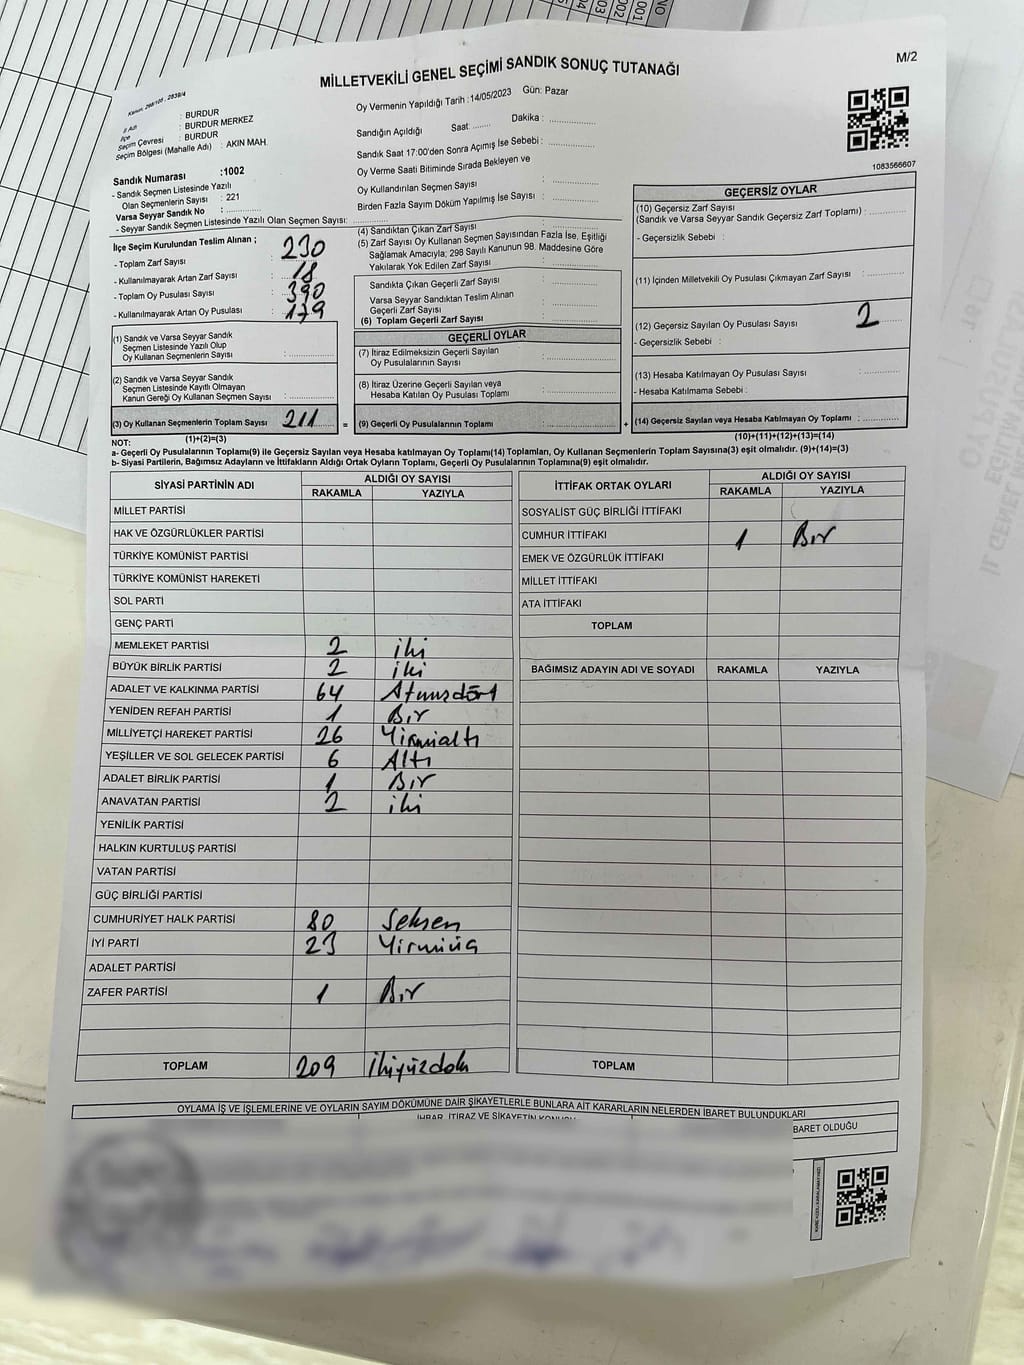 MİLLETVEKİLİ GENEL SEÇİMİ SANDIK SONUÇ TUTANAĞI
M/2
Kanun: 298/105 , 2839/4
İl Adı : BURDUR
İlçe : BURDUR MERKEZ
Seçim Çevresi : BURDUR
Seçim Bölgesi (Mahalle Adı) : AKIN MAH.
Sandık Numarası :1002
- Sandık Seçmen Listesinde Yazılı
Olan Seçmenlerin Sayısı : 221
Varsa Seyyar Sandık No :
- Seyyar Sandık Seçmen Listesinde Yazılı Olan Seçmen Sayısı:
Oy Vermenin Yapıldığı Tarih :14/05/2023 Gün: Pazar
Sandığın Açıldığı Saat: Dakika :
Sandık Saat 17:00'den Sonra Açımış İse Sebebi :
Oy Verme Saati Bitiminde Sırada Bekleyen ve
Oy Kullandırılan Seçmen Sayısı :
Birden Fazla Sayım Döküm Yapılmış İse Sayısı :
1083566607
İlçe Seçim Kurulundan Teslim Alınan ;
- Toplam Zarf Sayısı : 230
- Kullanılmayarak Artan Zarf Sayısı : 18
- Toplam Oy Pusulası Sayısı : 390
- Kullanılmayarak Artan Oy Pusulası : 179
(1) Sandık ve Varsa Seyyar Sandık
Seçmen Listesinde Yazılı Olup
Oy Kullanan Seçmenlerin Sayısı :
(2) Sandık ve Varsa Seyyar Sandık
Seçmen Listesinde Kayıtlı Olmayan
Kanun Gereği Oy Kullanan Seçmen Sayısı :
(3) Oy Kullanan Seçmenlerin Toplam Sayısı : 211 =
(1)+(2)=(3)
(4) Sandıktan Çıkan Zarf Sayısı :
(5) Zarf Sayısı Oy Kullanan Seçmen Sayısından Fazla İse, Eşitliği
Sağlamak Amacıyla; 298 Sayılı Kanunun 98. Maddesine Göre
Yakılarak Yok Edilen Zarf Sayısı :
Sandıkta Çıkan Geçerli Zarf Sayısı :
Varsa Seyyar Sandıktan Teslim Alınan
Geçerli Zarf Sayısı :
(6) Toplam Geçerli Zarf Sayısı :
GEÇERLİ OYLAR
(7) İtiraz Edilmeksizin Geçerli Sayılan
Oy Pusulalarının Sayısı :
(8) İtiraz Üzerine Geçerli Sayılan veya
Hesaba Katılan Oy Pusulası Toplamı :
(9) Geçerli Oy Pusulalarının Toplamı : +
GEÇERSİZ OYLAR
(10) Geçersiz Zarf Sayısı
(Sandık ve Varsa Seyyar Sandık Geçersiz Zarf Toplamı) :
- Geçersizlik Sebebi :
(11) İçinden Milletvekili Oy Pusulası Çıkmayan Zarf Sayısı :
(12) Geçersiz Sayılan Oy Pusulası Sayısı : 2
- Geçersizlik Sebebi :
(13) Hesaba Katılmayan Oy Pusulası Sayısı :
- Hesaba Katılmama Sebebi :
(14) Geçersiz Sayılan veya Hesaba Katılmayan Oy Toplamı :
(10)+(11)+(12)+(13)=(14)
NOT:
a- Geçerli Oy Pusulalarının Toplamı(9) ile Geçersiz Sayılan veya Hesaba katılmayan Oy Toplamı(14) Toplamları, Oy Kullanan Seçmenlerin Toplam Sayısına(3) eşit olmalıdır. (9)+(14)=(3)
b- Siyasi Partilerin, Bağımsız Adayların ve İttifakların Aldığı Ortak Oyların Toplamı, Geçerli Oy Pusulalarının Toplamına(9) eşit olmalıdır.
SİYASİ PARTİNİN ADI ALDIĞI OY SAYISI
RAKAMLA YAZIYLA
MİLLET PARTİSİ
HAK VE ÖZGÜRLÜKLER PARTİSİ
TÜRKİYE KOMÜNİST PARTİSİ
TÜRKİYE KOMÜNİST HAREKETİ
SOL PARTİ
GENÇ PARTİ
MEMLEKET PARTİSİ 2 iki
BÜYÜK BİRLİK PARTİSİ 2 iki
ADALET VE KALKINMA PARTİSİ 64 Atmışdört
YENİDEN REFAH PARTİSİ 1 Bir
MİLLİYETÇİ HAREKET PARTİSİ 26 Yirmialtı
YEŞİLLER VE SOL GELECEK PARTİSİ 6 Altı
ADALET BİRLİK PARTİSİ 1 Bir
ANAVATAN PARTİSİ 2 iki
YENİLİK PARTİSİ
HALKIN KURTULUŞ PARTİSİ
VATAN PARTİSİ
GÜÇ BİRLİĞİ PARTİSİ
CUMHURİYET HALK PARTİSİ 80 Seksen
İYİ PARTİ 23 Yirmiüç
ADALET PARTİSİ
ZAFER PARTİSİ 1 Bir
TOPLAM 209 İkiyüzdok
İTTİFAK ORTAK OYLARI ALDIĞI OY SAYISI
RAKAMLA YAZIYLA
SOSYALİST GÜÇ BİRLİĞİ İTTİFAKI
CUMHUR İTTİFAKI 1 Bir
EMEK VE ÖZGÜRLÜK İTTİFAKI
MİLLET İTTİFAKI
ATA İTTİFAKI
TOPLAM
BAĞIMSIZ ADAYIN ADI VE SOYADI RAKAMLA YAZIYLA
TOPLAM
OYLAMA İŞ VE İŞLEMLERİNE VE OYLARIN SAYIM DÖKÜMÜNE DAİR ŞİKAYETLERLE BUNLARA AİT KARARLARIN NELERDEN İBARET BULUNDUKLARI
İHBAR, İTİRAZ VE ŞİKAYETİN KONUSU
BARET OLDUĞU